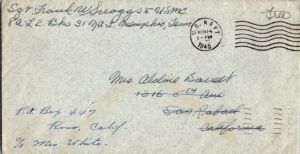 Sgt Frank W Scroggs USMC
Bks 21 N.A.S. Memphis, Tenn
U.S. NAVY
1945
Free
Mrs. Aldine
1316 6th Ave
San Rafael
California
P.O. Box 447
Ross, Calif
c/o Mrs. White.